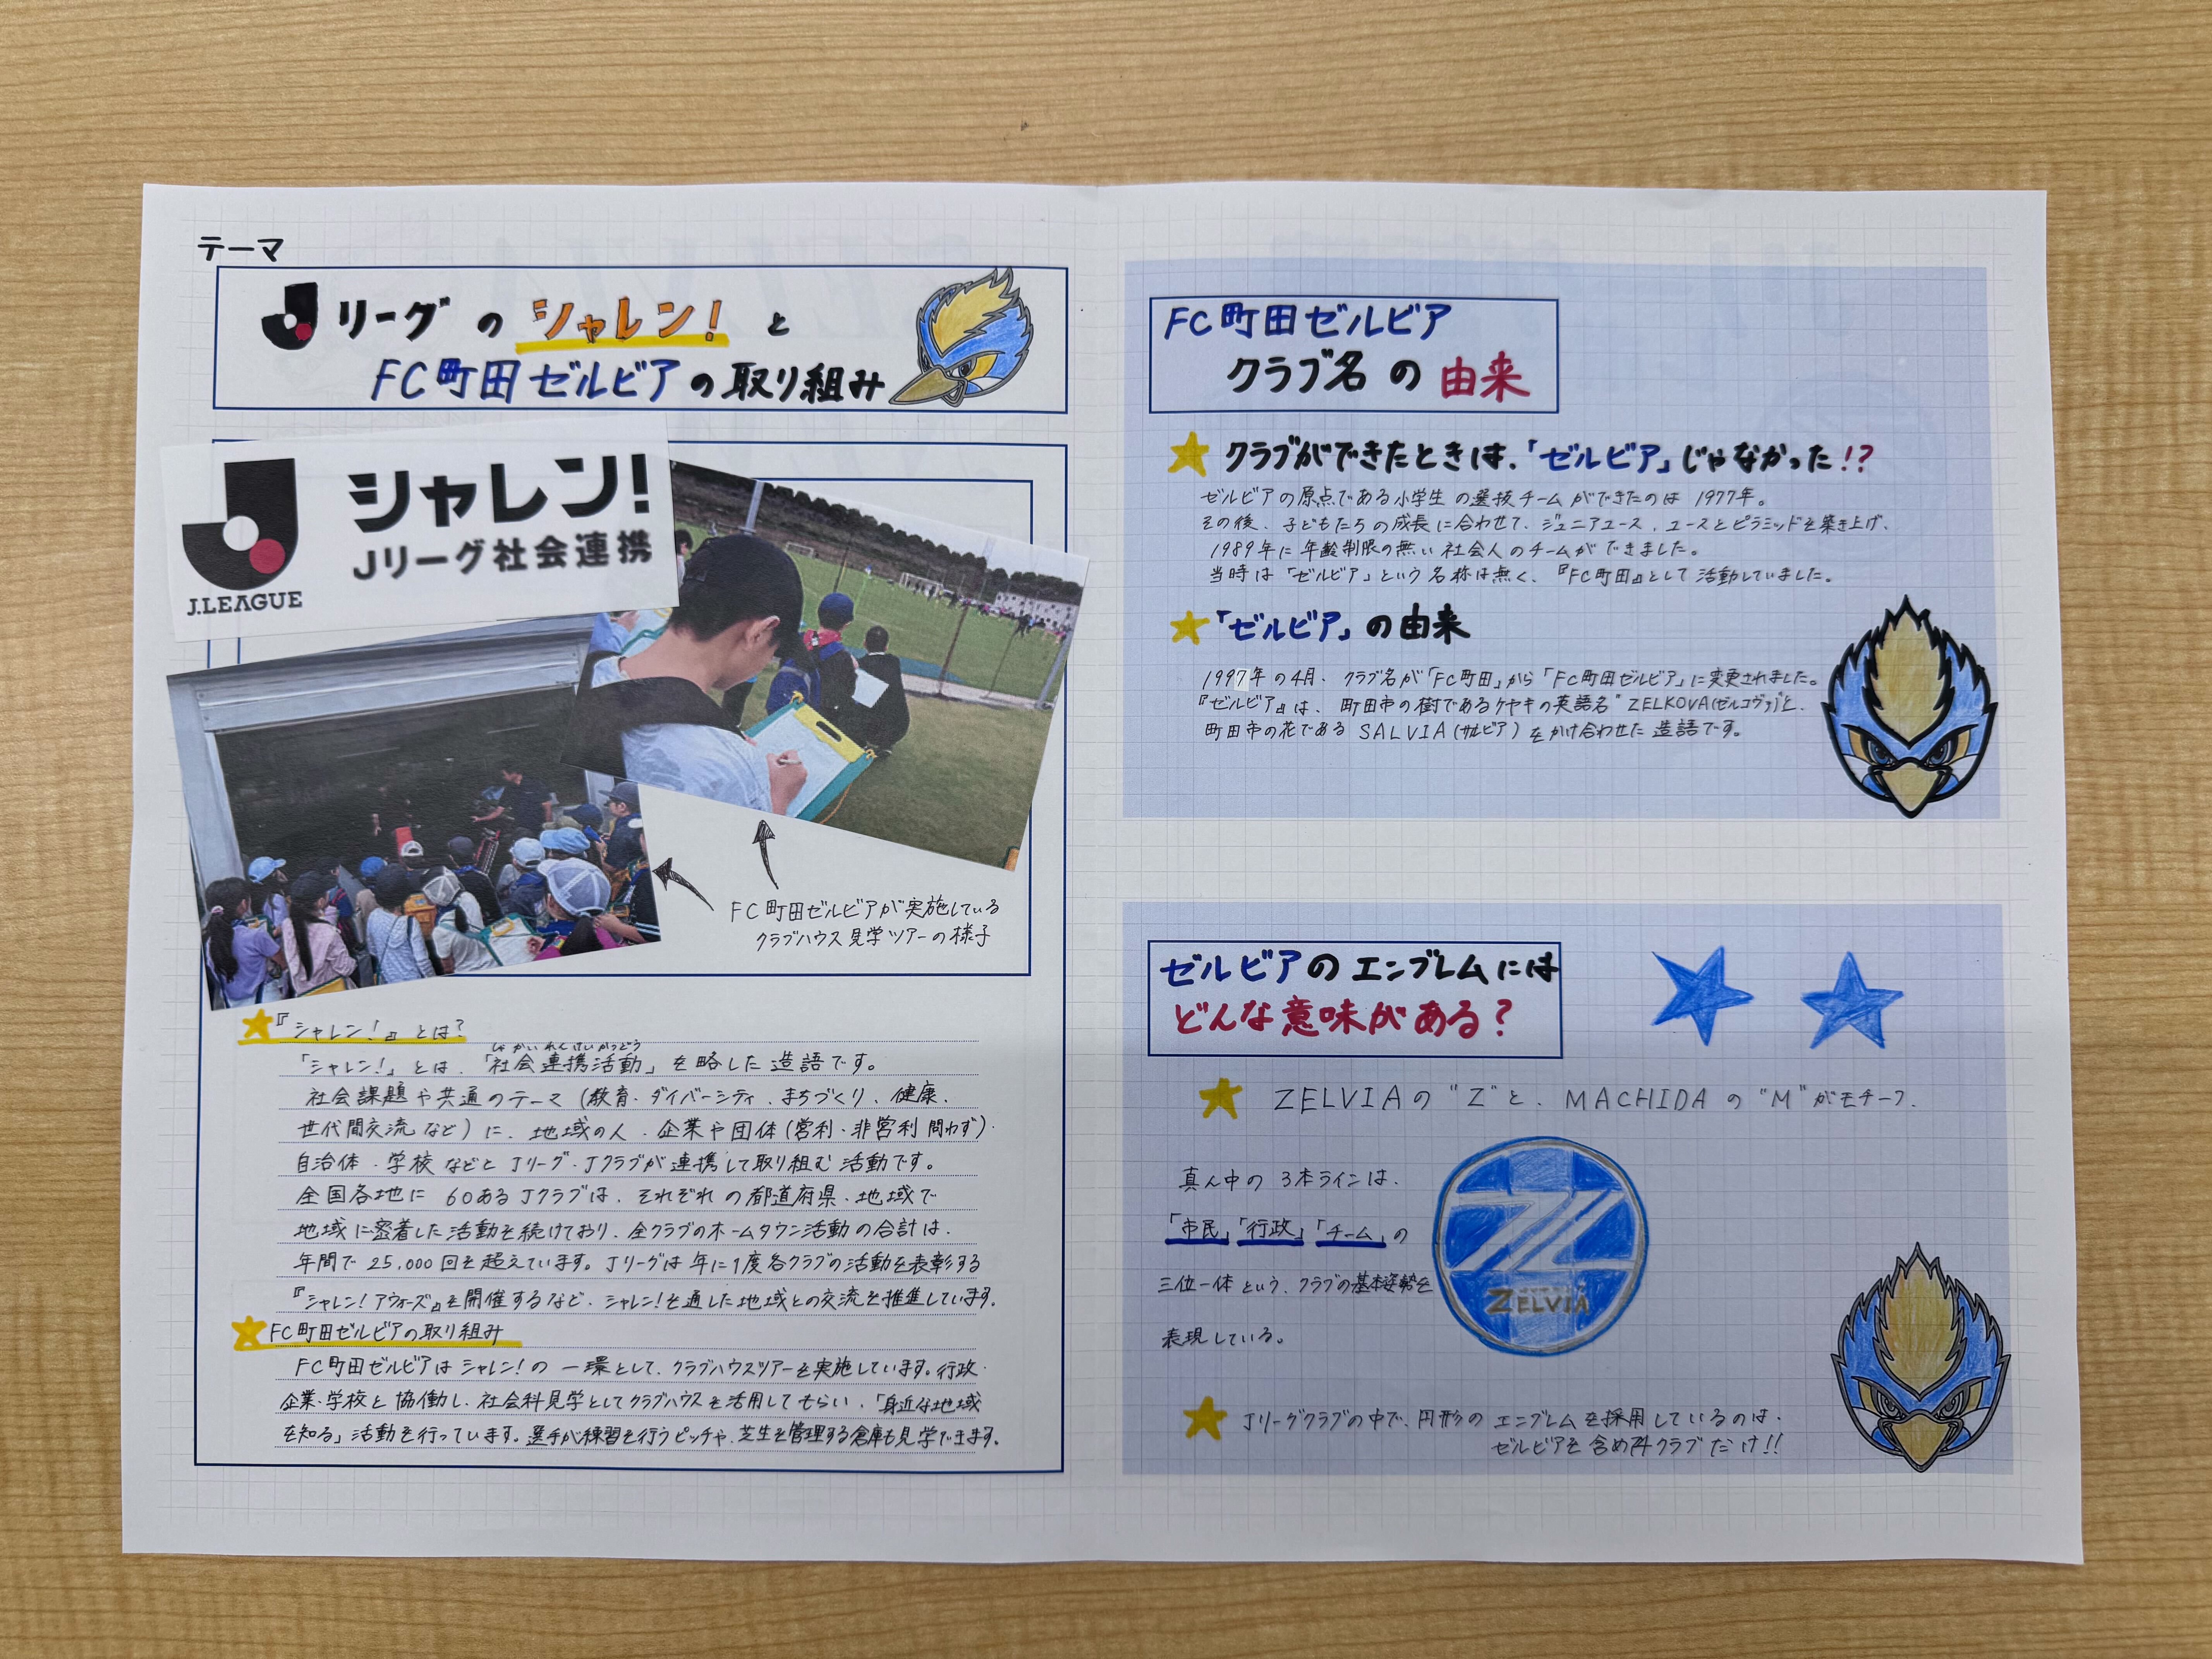 テーマ
Jリーグのシャレン!と
FC町田ゼルビアの取り組み
シャレン!
Jリーグ社会連携
J.LEAGUE
FC町田ゼルビアが実施している
クラブハウス見学ツアーの様子
『シャレン!』とは?
しゃかいれんけいかつどう
「シャレン!」とは、「社会連携活動」を略した造語です。
社会課題や共通のテーマ(教育、ダイバーシティ、まちづくり、健康、
世代間交流など)に、地域の人、企業や団体(営利・非営利問わず)、
自治体、学校などとJリーグ・Jクラブが連携して取り組む活動です。
全国各地に60あるJクラブは、それぞれの都道府県、地域で
地域に密着した活動を続けており、全クラブのホームタウン活動の合計は、
年間で25,000回を超えています。Jリーグは年に1度各クラブの活動を表彰する
『シャレン!アウォーズ』を開催するなど、シャレン!を通した地域との交流を推進しています。
FC町田ゼルビアの取り組み
FC町田ゼルビアはシャレン!の一環として、クラブハウスツアーを実施しています。行政・
企業・学校と協働し、社会科見学としてクラブハウスを活用してもらい、「身近な地域
を知る」活動を行っています。選手が練習を行うピッチや、芝生を管理する倉庫も見学できます。
FC町田ゼルビア
クラブ名の由来
クラブができたときは、「ゼルビア」じゃなかった!?
ゼルビアの原点である小学生の選抜チームができたのは1977年。
その後、子どもたちの成長に合わせて、ジュニアユース、ユースとピラミッドを築き上げ、
1989年に年齢制限の無い社会人のチームができました。
当時は「ゼルビア」という名称は無く、『FC町田』として活動していました。
「ゼルビア」の由来
1997年の4月、クラブ名が「FC町田」から「FC町田ゼルビア」に変更されました。
『ゼルビア』は、町田市の樹であるケヤキの英語名"ZELKOVA(ゼルコヴァ)"と、
町田市の花であるSALVIA(サルビア)をかけ合わせた造語です。
ゼルビアのエンブレムには
どんな意味がある?
ZELVIAの"Z"と、MACHIDAの"M"がモチーフ。
真ん中の3本ラインは、
「市民」「行政」「チーム」の
三位一体という、クラブの基本姿勢を
表現している。
ZELVIA
Jリーグクラブの中で、円形のエンブレムを採用しているのは、
ゼルビアを含め クラブだけ!!